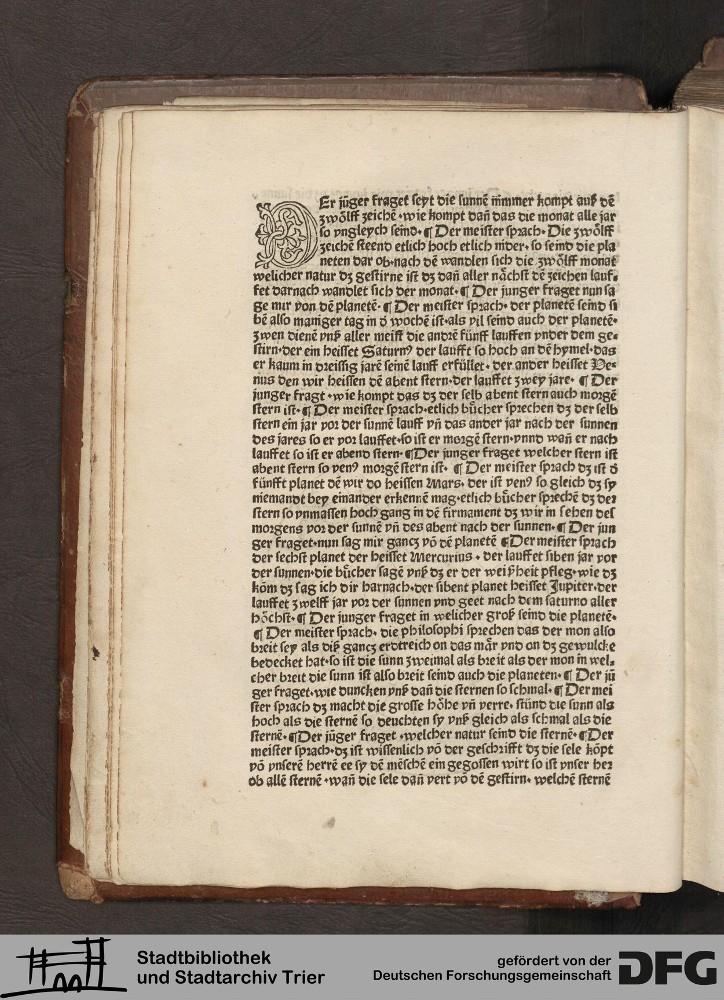 DEr jũger fraget seyt die sunnē nĩmmer kompt auß dē
zwölff zeichē · wie kompt dañ das die monat alle jar
so vngleych seind · ¶ Der meister sprach · Die zwölff
zeichē steend etlich hoch etlich nider · so seind die pla
neten dar ob · nach dē wandlen sich die zwölff monat
welicher natur dz gestirne ist dz dañ aller nächst dē zeichen lauf-
fet darnach wandlet sich der monat · ¶ Der junger fraget nun sa
ge mir von dē planetē · ¶ Der meister sprach · der planetē seind si
bē also maniger tag in d̄ wochē ist · als vil seind auch der planetē ·
zwen dienē vnß aller meist die andrē fünff lauffen vnder dem ge-
stirn · der ein heisset Saturnꝰ der laufft so hoch an dē hymel · das
er kaum in dreissig jarē seinē lauff erfüllet · der ander heisset Ve-
nus den wir heissen dē abent stern · der lauffet zwey jare · ¶ Der
junger fragt · wie kompt das dz der selb abent stern auch morgē
stern ist · ¶ Der meister sprach · etlich bücher sprechen dz der selb
stern ein jar vor der sunnē lauff vñ das ander jar nach der sunnen
des jares so er vor lauffet · so ist er morgē stern · vnnd wañ er nach
lauffet so ist er abend stern · ¶ Der junger fraget welcher stern ist
abent stern so yenꝰ morgē stern ist · ¶ Der meister sprach dz ist d̄
fünfft planet dē wir do heissen Mars · der ist yenꝰ so gleich dz sy
niemandt bey einander erkennē mag · etlich bücher sprechē dz der
stern so vnmassen hoch gang in dē firmament dz wir in sehen des
morgens vor der sunnē vñ des abent nach der sunnen · ¶ Der jun
ger fraget · nun sag mir gancz vō dē planetē ¶ Der meister sprach
der sechst planet der heisset Mercurius · der lauffet siben jar vor
der sunnen · die bücher sagē vnß dz er der weißheit pfleg · wie dz
kōm dz sag ich dir harnach · der sibent planet heisset Jupiter · der
lauffet zwelff jar vor der sunnen vnd geet nach dem saturno aller
höchst · ¶ Der junger fraget in welicher groß seind die planetē ·
¶ Der meister sprach · die philosophi sprechen das der mon also
breit sey als diß gancz erdtreich on das mär vnd on dz gewulcke
bedecket hat · so ist die sunn zweimal als breit als der mon in wel-
cher breit die sunn ist also breit seind auch die planeten · ¶ Der jũ
ger fraget · wie duncken vnß dañ die sternen so schmal · ¶ Der mei
ster sprach dz macht die grosse höhe vñ verre · stünd die sunn als
hoch als die sternē so deuchten sy vnß gleich als schmal als die
sternē · ¶ Der jũger fraget · welcher natur seind die sternē · ¶ Der
meister sprach · dz ist wissenlich vō der geschrifft dz die sele kōpt
vō vnserē herrē ee sy dē mēschē ein gegossen wirt so ist vnser her
ob allē sternē · wañ die sele dañ vert vō dē gestirn · welchē sternē
Stadtbibliothek
und Stadtarchiv Trier
gefördert von der
Deutschen Forschungsgemeinschaft
DFG